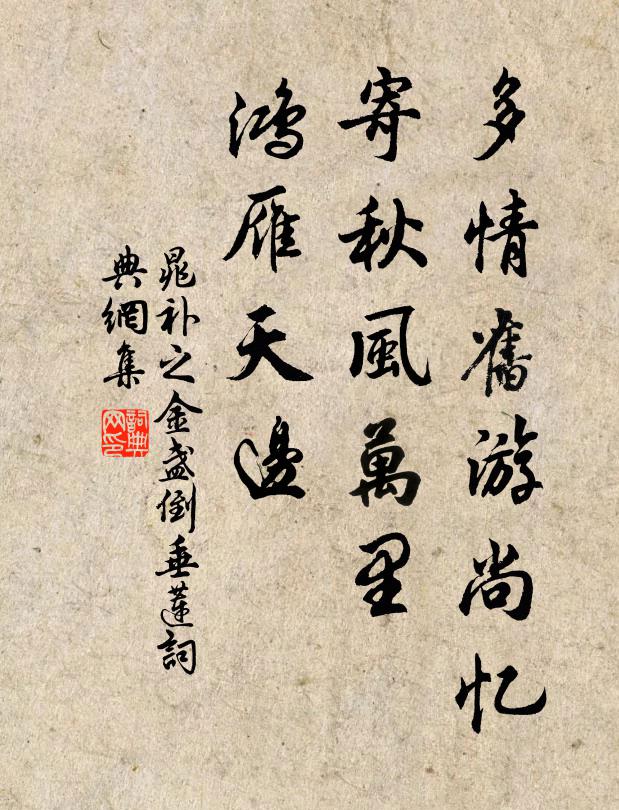 多情舊游尚忆
寄秋風萬里
鴻雁天邊
晁补之金盞倒垂蓮詞
典網集
詞典网印